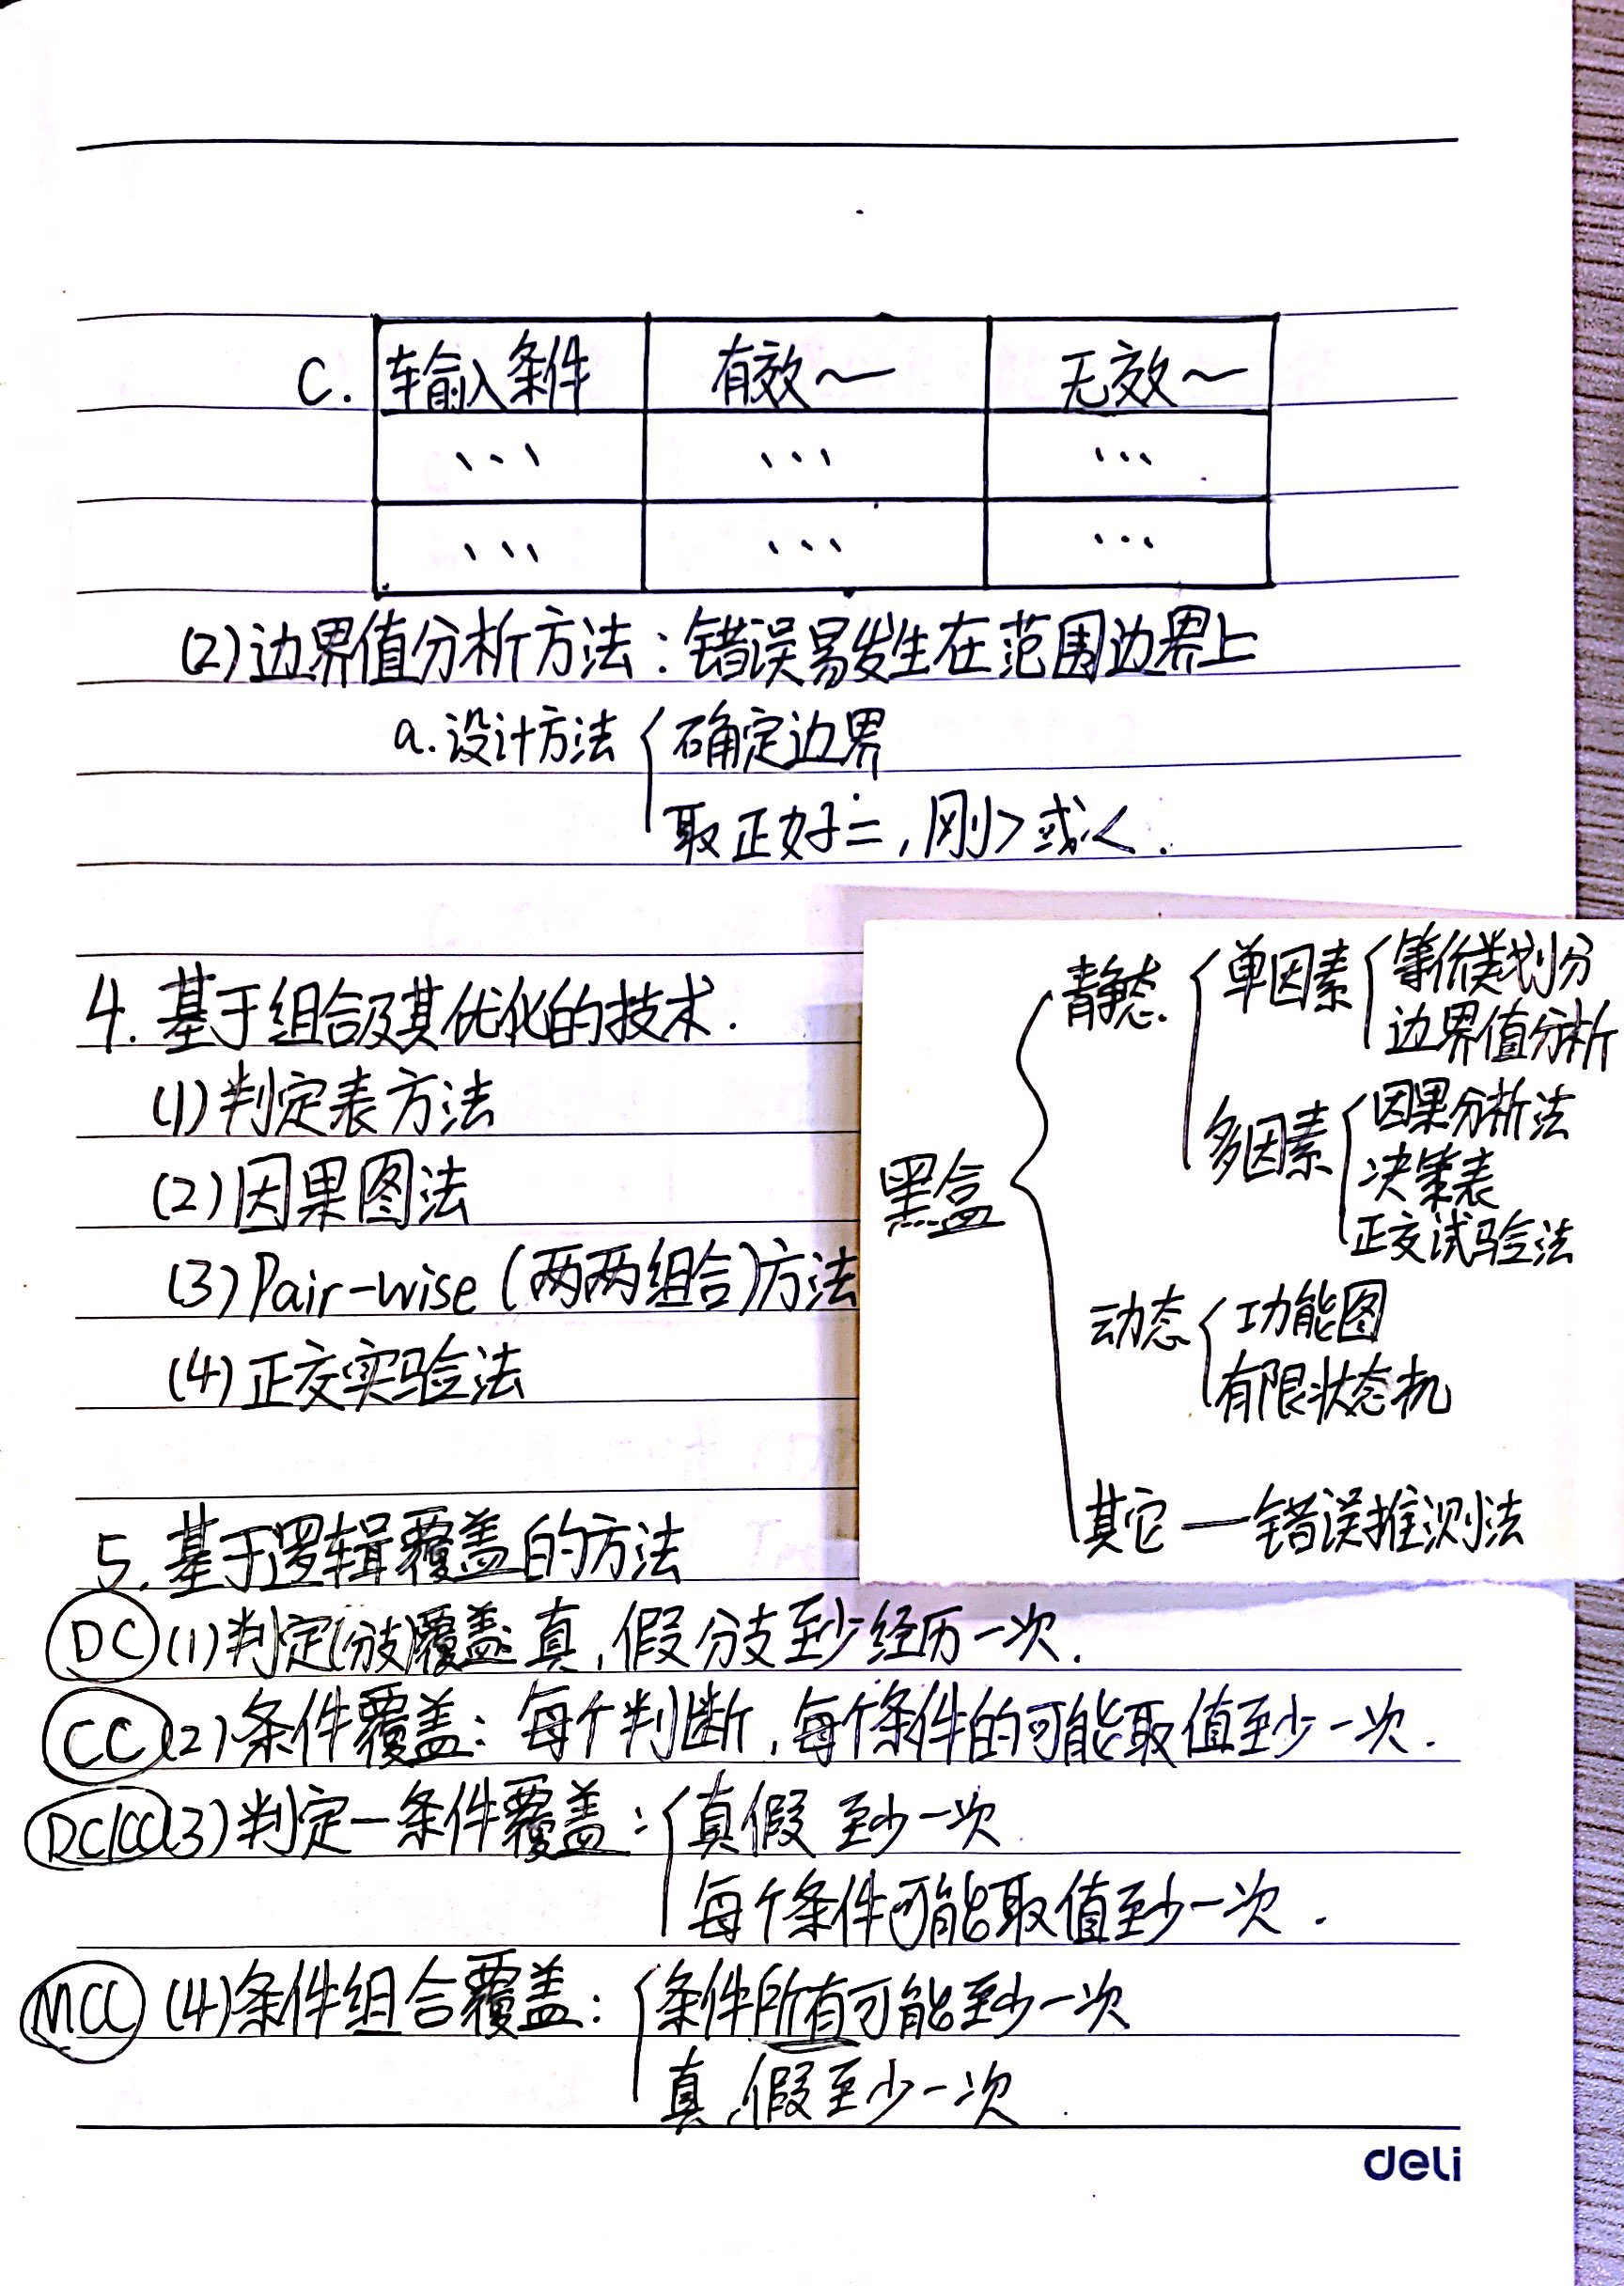 C. 输入条件 有效～ 无效～
... ... ...
... ... ...
(2)边界值分析方法：错误易发生在范围边界上
a.设计方法 { 确定边界
取正好=，刚>或<.
4.基于组合及其优化的技术.
(1)判定表方法
(2)因果图法
(3)Pair-wise(两两组合)方法
(4)正交实验法
黑盒
静态
单因素
等价类划分
边界值分析
多因素
因果分析法
决策表
正交试验法
动态
功能图
有限状态机
其它—错误推测法
5.基于逻辑覆盖的方法
DC (1)判定(分支)覆盖:真,假分支至少经历一次.
CC (2)条件覆盖:每个判断,每个条件的可能取值至少一次.
DC/CC (3)判定-条件覆盖: { 真假 至少一次
每个条件可能取值至少一次.
MCC (4)条件组合覆盖: { 条件所有可能至少一次
真,假至少一次
deli